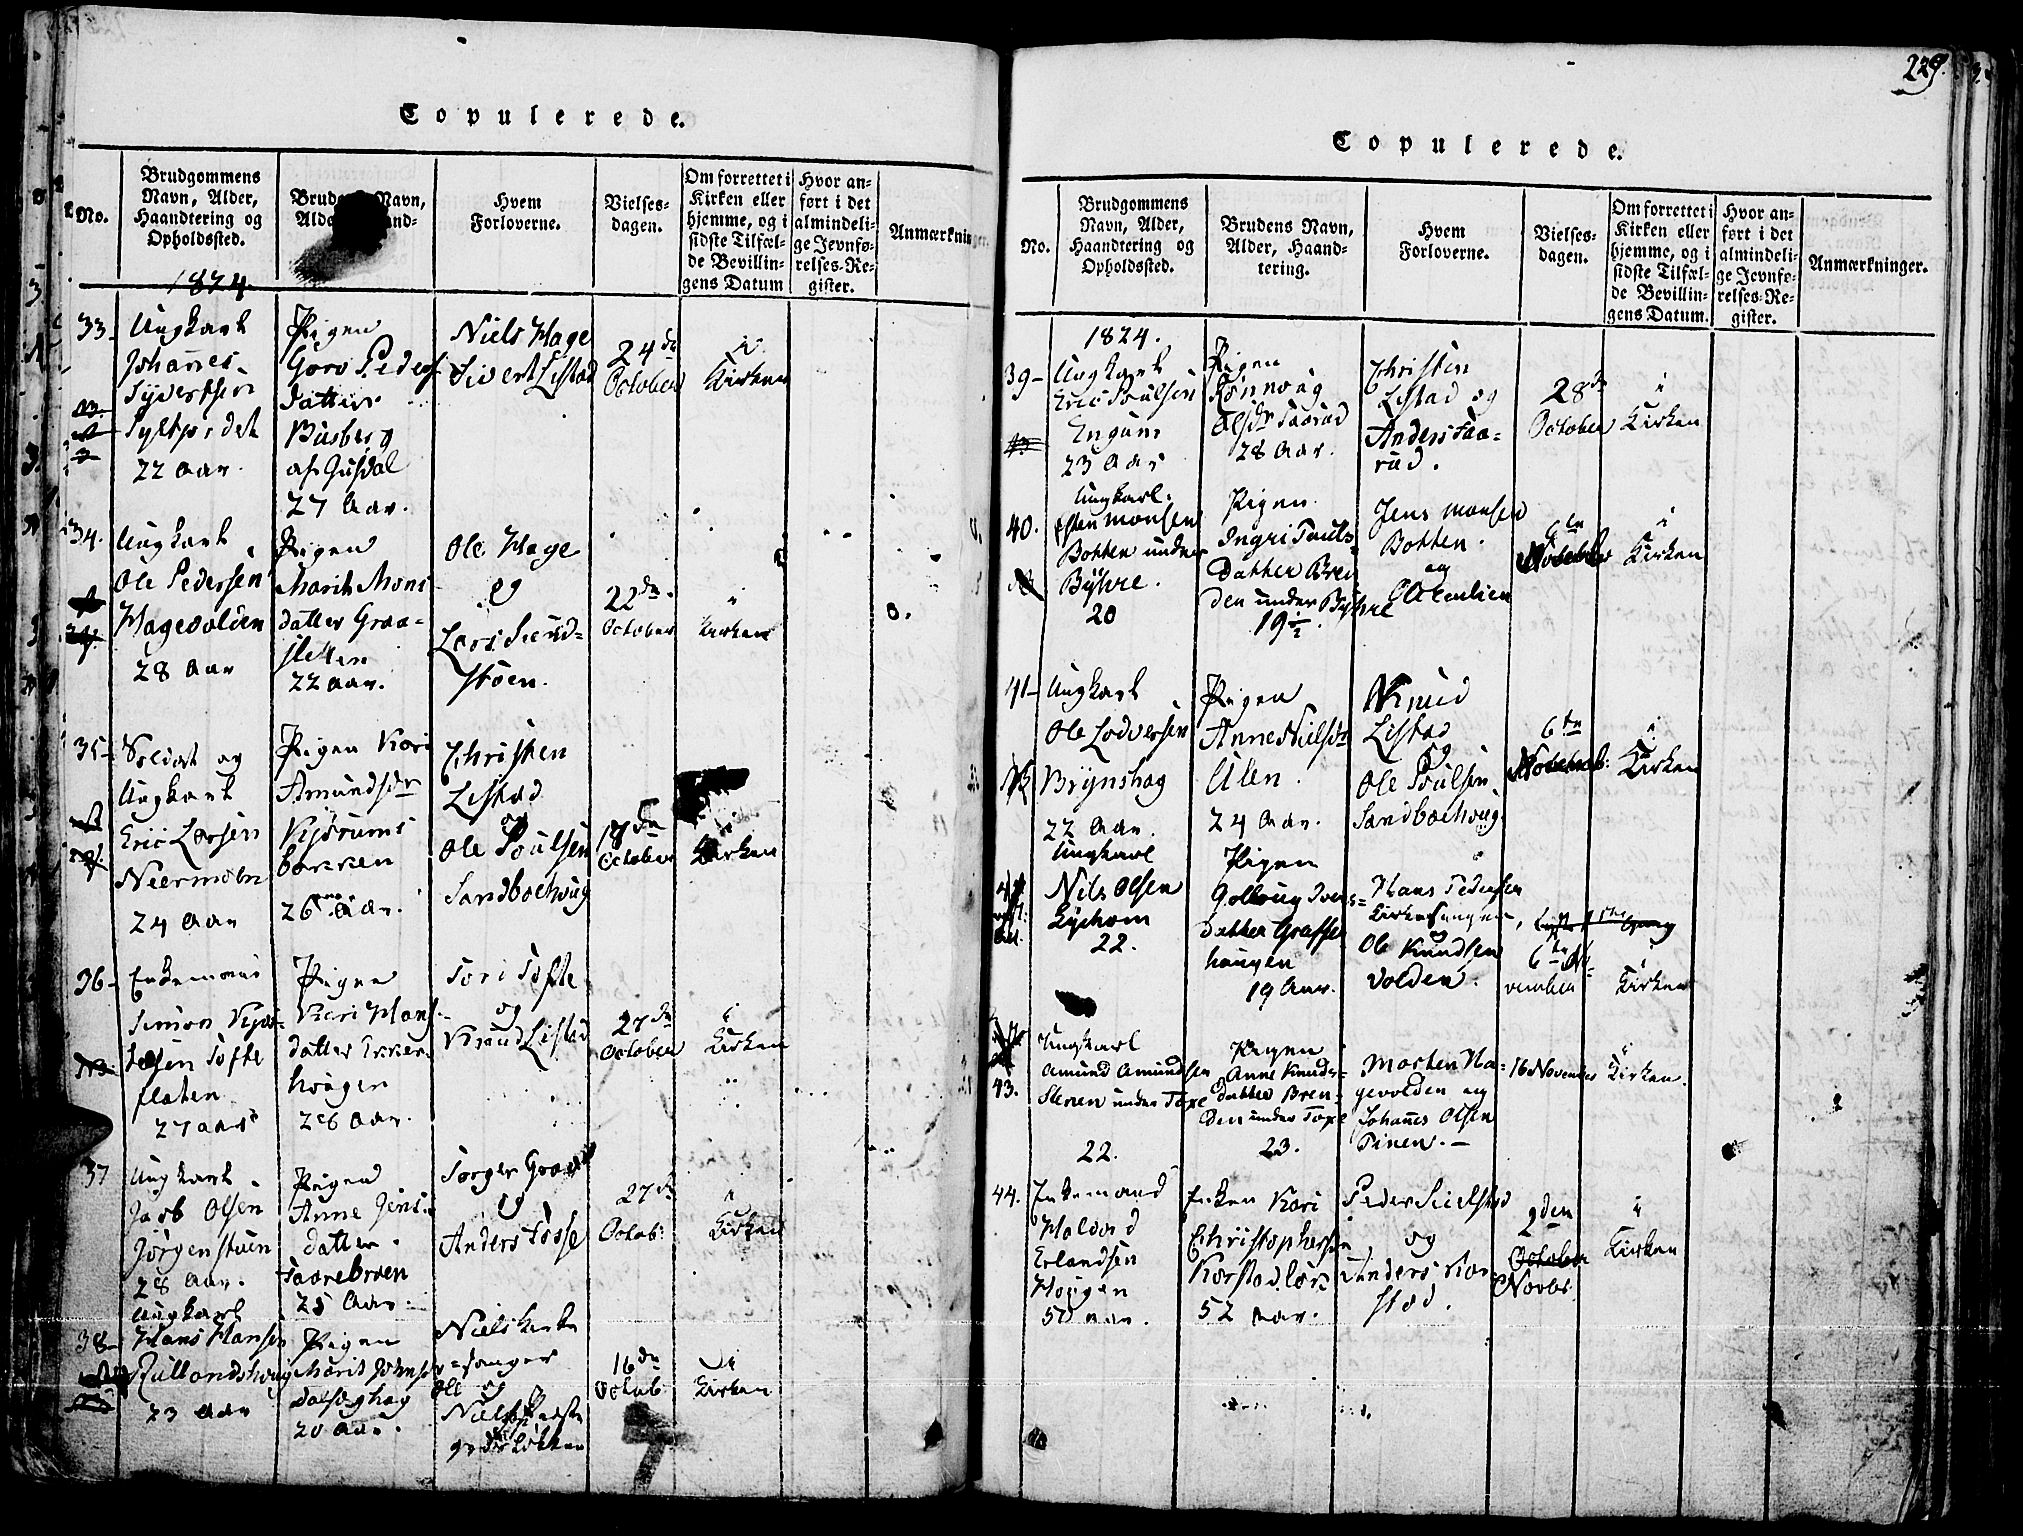 Copulerede.
No.
Brudgommens
Navn, Alder,
Haandtering og
Opholdssted.
Navn,
Hvem
Forloverne.
Vielses-
dagen.
Om forrettet i
Kirken eller
hjemme, og i
sidste Tilfæl-
de Bevillin-
gens Datum
Hvor an-
ført i det
almindeli-
ge Jevnfø-
relses-Re-
gister.
Anmærkninger.
1824
33.
Ungkarl
Johannes
22 Aar.
Pigen
Goro Peders
datter
Busberg
af Gusdal
27 Aar.
Niels Hage
Sivert Listad
24de
October
i
Kirken
34.
Ungkarl
Ole Pedersen
Hagevolden
28 Aar
Pigen
Marith Mons
datter Graa-
sletten
22 aar.
Ole Hage
og
Lars Sund-
støen.
22de
October
i
Kirken
35-
Soldat og
Ungkarl
Eric Larsen
24 Aar
Pigen Kari
Amundsdr
bakken
26 Aar.
Christen
Listad
og
Ole Poulsen
Sandboehoug
October
Kirken
36-
Enkemand
Simon
Tofte
fladen
27 aar
Pigen
Kari Hans
datter Ekker
hougen
26 Aar.
Tori Tofte
og
Knud Listad
27de
October
i
Kirken
37
Ungkarl
Jacob Olsen
Jørgenstuen
28 Aar.
Pigen
Anne Jens
datter.
Taarebroen
25 Aar.
Torger
og
Anders Fosse
27de
Octob:
i
Kirken
38-
Ungkarl
Hans Hansen
23 Aar
Pigen
Marit Johns
20 Aar.
Niels Kirke
sanger
og
16de
Octob.
i
Kirken
229.
Copulerede.
No.
Brudgommens
Navn, Alder,
Haandtering og
Opholdssted.
Brudens Navn,
Alder, Haand-
tering.
Hvem
Forloverne.
Vielses-
dagen.
Om forrettet i
Kirken eller
hjemme, og i
sidste Tilfæl-
de Bevillin-
gens Datum.
Hvor an-
ført i det
almindeli-
ge Jevnfø-
relses-Re-
gister.
Anmærkninger.
1824.
39-
Ungkarl
Eric Poulsen
Engum
23 Aar
Pigen
Rønnoug
Olsdr Taarud
28 Aar.
Christen
Listad og
Anders Taa-
rud.
28de
October
i
Kirken
40.
Ungkarl.
Østen Monsen
Botten under
Byhre.
20
Pigen
Ingri Pauls-
datter Bre
den under Byhre
19½.
Jens Monsen
Botten.
og
6te
November
i
Kirken
41-
Ungkarl
Ole Lodversen
Brynshag
22 Aar.
Pigen
Anne Nielsdr
Ulen.
24 Aar.
Knud
Listad
og
Ole Poulsen
Sandboehoug.
6te
Novemb:
i
Kirken
Ungkarl
Nils Olsen
22.
Pigen
Golloug Ivers-
datter Graffer
haugen
19 Aar.
Hans Pedersen
Kirkesanger
og
Ole Knudsen
Volden.
6te No-
vember
i
Kirken
43.
Ungkarl
Amund Amundsen
Stenen under Toxe
22.
Pigen
Anne Knuds-
datter Bren-
den under Toxe
23.
Morten Ha-
gevolden og
Johannes Olsen
Pinen.-
16 November
i
Kirken.
44.
Enkemand
Halvord
Erlandsen
Hougen
50 aar.
Enken Kari
Christophersdr
52 aar.
Peder Sielstad
og
Anders Kor
stad.
2den
October
Novbr.
i
Kirken